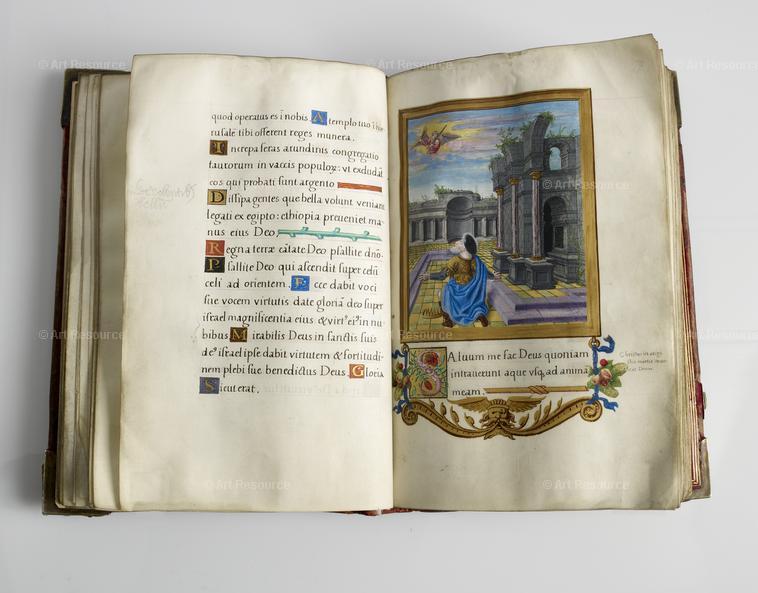 quod operatus es ī nobis. A templo tuo
rusalē tibi offerent reges munera.
Increpa feras arundinis congregatio
tautorum in vaccis populoꝝ: vt excludāt
eos qui probati sunt argento
Dissipa gentes que bella volunt veniant
legati ex egipto: ethiopia preueniet ma-
nus eius Deo
Regna terræ cātate Deo psallite dn̄o.
Psallite Deo qui ascendit super celū
celi ad orientem. Ecce dabit voci
sue vocem virtutis date gloriā deo super
israel magnificentia eius & virt' ei' in nu-
bibus Mirabilis Deus in sanctis suis
de' israel ipse dabit virtutem & fortitudi-
nem plebi sue benedictus Deus. Gloria
Sicut erat.
Saluum me fac Deus quoniam
intrauerunt aque vsq, ad animā
meam.
© Art Resource
© Art Resource
© Art Resource
© Art Resource
© Art Resource
© Art Resource
© Art Resource
© Art Resource
© Art Resource
© Art Resource